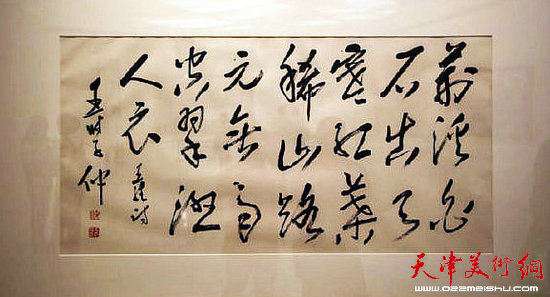 荆溪白
石出天
寒紅葉
稀山路
元無雨
空翠濕
人衣 王維詩
仲
天津美術網
www.022meishu.com